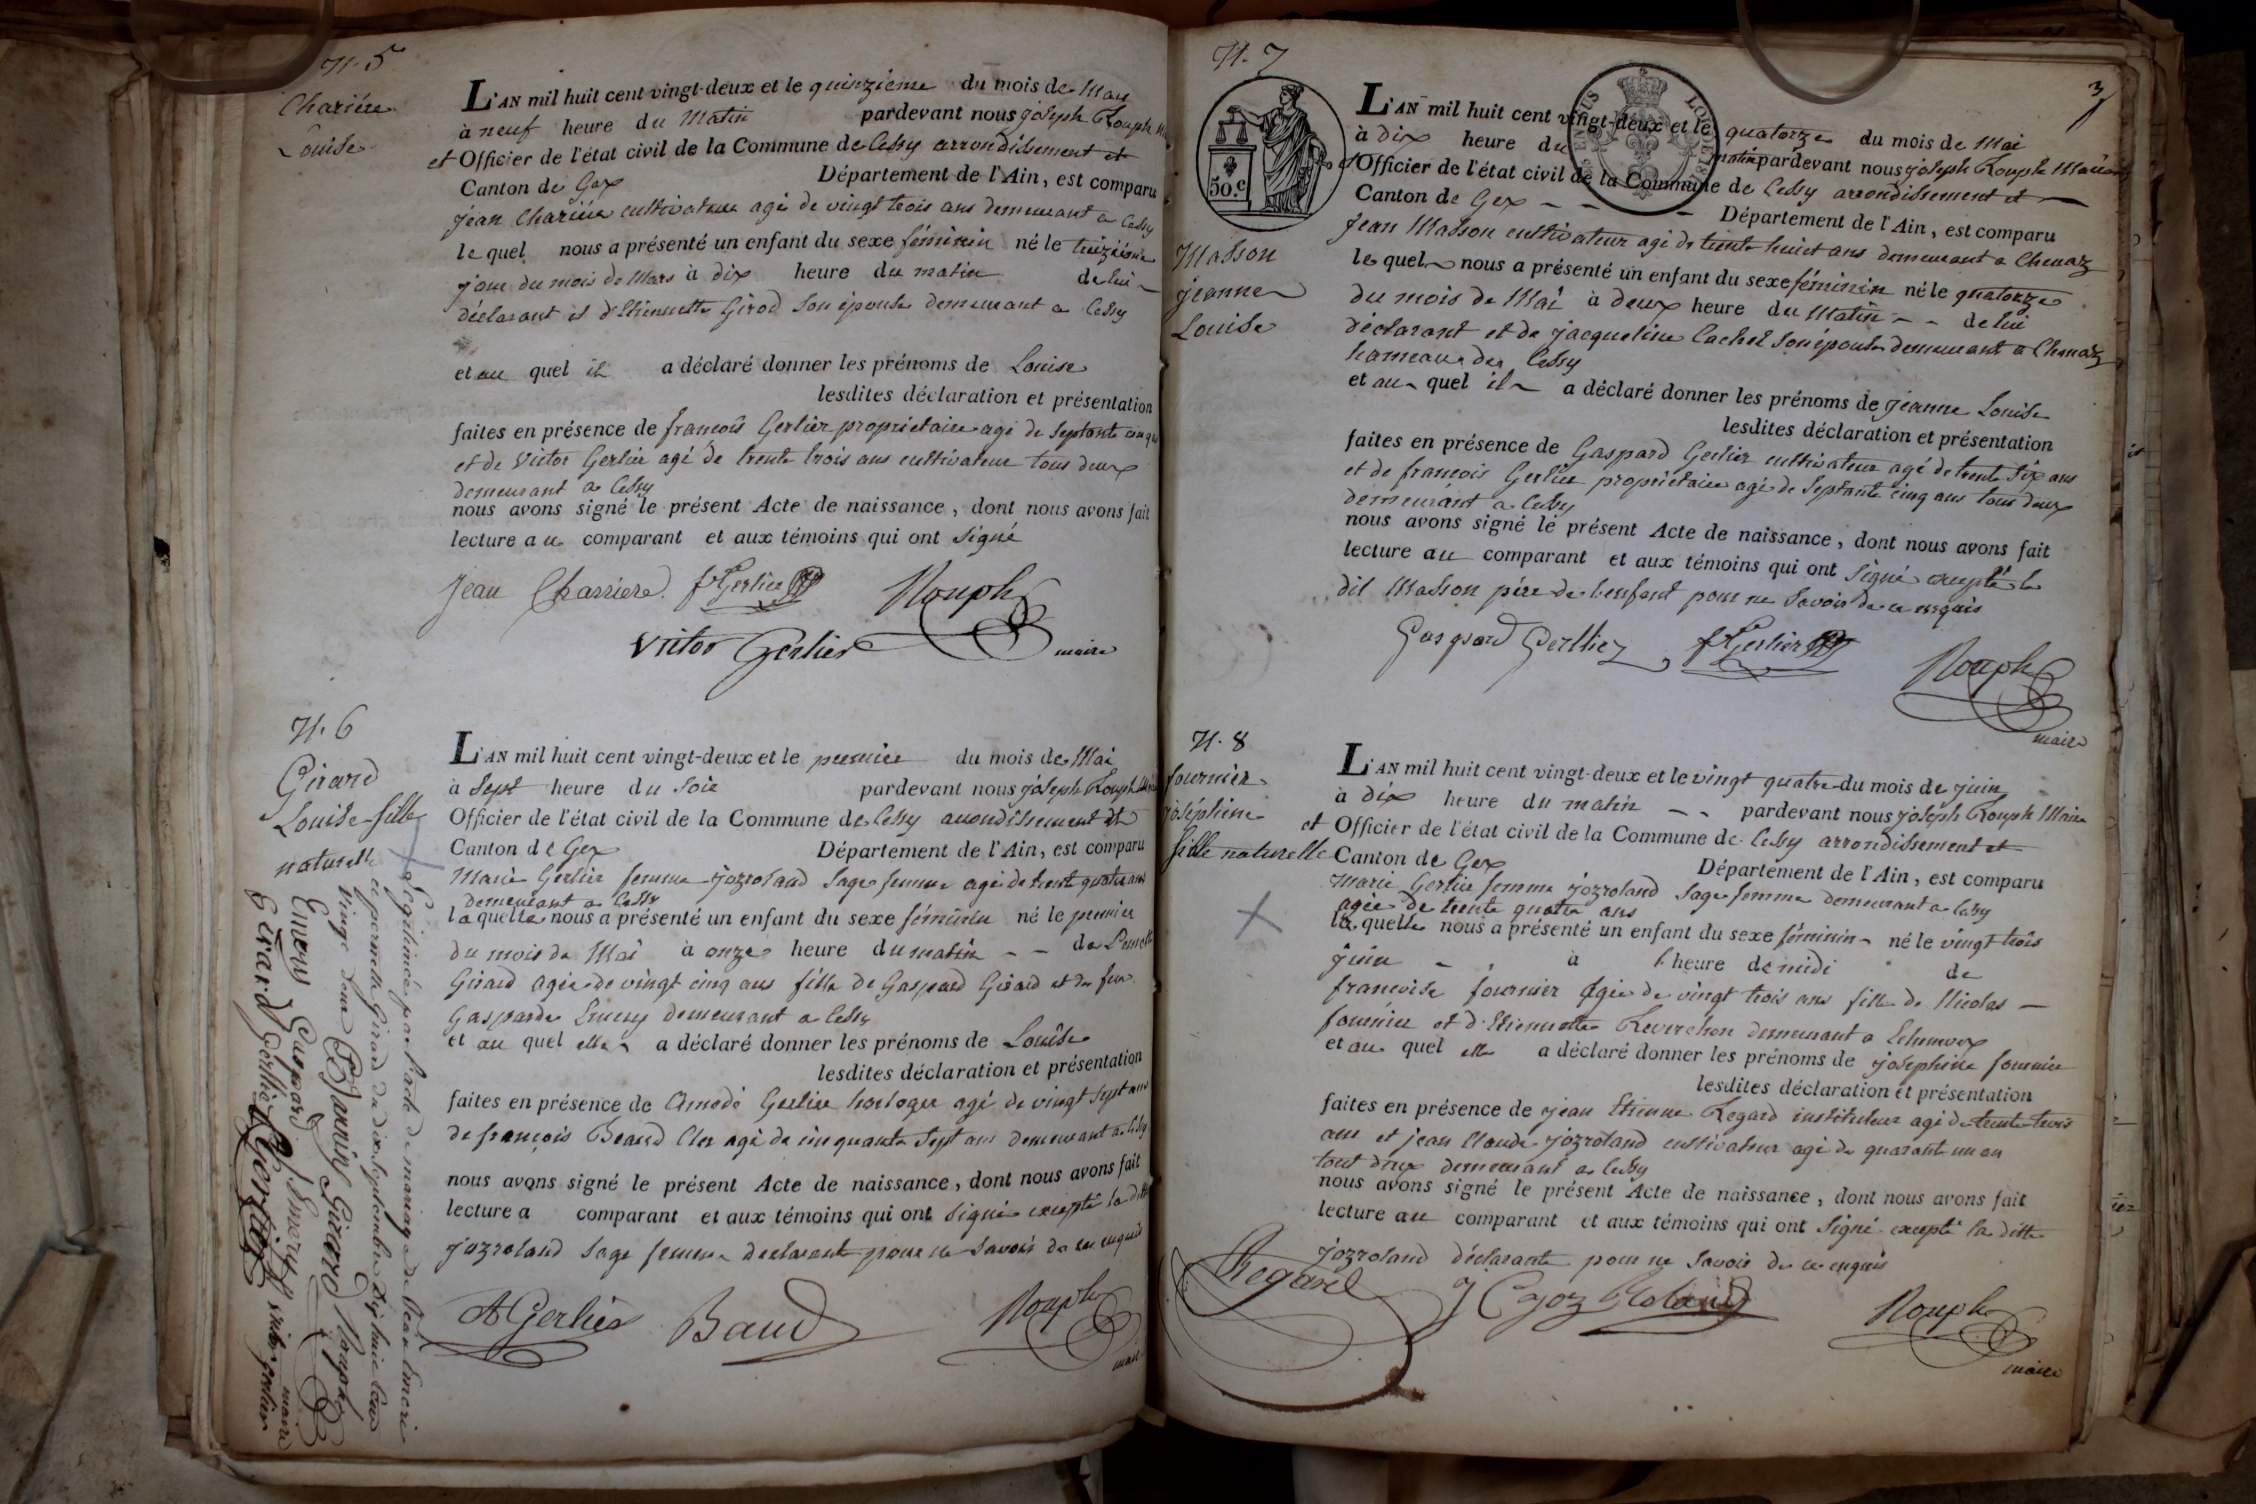 N. 5
Chariére
Louise
L'AN mil huit cent vingt-deux et le quinzieme du mois de Mars
à neuf heure du Matin pardevant nous joseph Rouph
et Officier de l'état civil de la Commune de Cessy arrondissement et
Canton de Gex Département de l'Ain, est comparu
jean Chariére cultivateur agé de vingt trois ans demeurant a Cessy
le quel nous a présenté un enfant du sexe féminin né le treizième
jour du mois de Mars à dix heure du matin de lui
déclarant et d'Etiennette Girod son épouse demeurant a Cessy
et au quel il a déclaré donner les prénoms de Louise
lesdites déclaration et présentation
faites en présence de françois Gerlier propriétaire agé de septante cinq
et de Victor Gerlier agé de trente trois ans cultivateur tous deux
demeurant a Cessy
nous avons signé le présent Acte de naissance, dont nous avons fait
lecture au comparant et aux témoins qui ont signé
jean Charriere. f Gerlier Rouph
Victor Gerlier maire
N. 6
Girard
Louise fille
naturelle
L'AN mil huit cent vingt-deux et le premier du mois de Mai
à sept heure du soir pardevant nous joseph Rouph
Officier de l'état civil de la Commune de Cessy arrondissement et
Canton de Gex Département de l'Ain, est comparu
Marie Gerlier femme jozroland sage femme agé de trent quatre ans
demeurant a Cessy
la quelle nous a présenté un enfant du sexe féminin né le premier
du mois de Mai à onze heure du matin - - de
Girard agée de vingt cinq ans fille de Gaspard Girard et de feu
Gasparde Emery demeurant a Cessy
et au quel elle a déclaré donner les prénoms de Louise
lesdites déclaration et présentation
faites en présence de Amedé Gerlier horloger agé de vingt sept ans
de françois Beaud agé de cinquante sept ans demeurant a Cessy
nous avons signé le présent Acte de naissance, dont nous avons fait
lecture a comparant et aux témoins qui ont signé excepté la ditte
jozroland sage femme declarante pour ne savoir de ce enquis
A Gerlier Baud Rouph
maire
Légitimée par l'acte de mariage de
et pernette Girard du dix septembre dix huit cent
vingt deux Girard Rouph
Emery Gaspard maire
Gerard Gerlier victor gerlier
N. 7
50.c
3
Masson
jeanne
Louise
L'AN mil huit cent vingt-deux et le quatorze du mois de Mai
à dix heure du matin pardevant nous joseph Rouph Maire
et Officier de l'état civil de la Commune de Cessy arrondissement et
Canton de Gex - - - Département de l'Ain, est comparu
jean Masson cultivateur agé de trente huit ans demeurant a Chenaz
le quel nous a présenté un enfant du sexe féminin né le quatorze
du mois de Mai à deux heure du Matin - - de lui
déclarant et de jacqueline Cachet son épouse demeurant a Chenaz
hameau de Cessy
et au quel il a déclaré donner les prénoms de jeanne Louise
lesdites déclaration et présentation
faites en présence de Gaspard Gerlier cultivateur agé de trente six ans
et de françois Gerlier propriétaire agé de septante cinq ans tous deux
demeurant a Cessy
nous avons signé le présent Acte de naissance, dont nous avons fait
lecture au comparant et aux témoins qui ont signé excepté le
dit Masson pére de l'enfant pour ne savoir de ce enquis
Gaspard Gerlliez f Gerlier Rouph
maire
N. 8
fournier
joséphine
fille naturelle
L'AN mil huit cent vingt-deux et le vingt quatre du mois de juin
à dix heure du matin - - pardevant nous joseph Rouph Maire
et Officier de l'état civil de la Commune de Cessy arrondissement et
Canton de Gex Département de l'Ain, est comparu
Marie Gerlier femme jozroland sage femme demeurant a Cessy
agée de trente quatre ans
la quelle nous a présenté un enfant du sexe féminin né le vingt trois
juin - à l'heure de midi de
francoise fournier agée de vingt trois ans fille de Nicolas -
fournier et d'Etiennette Reverchon demeurant a Echenevex
et au quel elle a déclaré donner les prénoms de josephine fournier
lesdites déclaration et présentation
faites en présence de jean Etienne Regard instituteur agé de trente trois
ans et jean Claude jozroland cultivateur agé de quarante un an
tout deux demeurant a Cessy
nous avons signé le présent Acte de naissance, dont nous avons fait
lecture au comparant et aux témoins qui ont signé excepté la ditte
jozroland déclarante pour ne savoir de ce enquis
Regard Rouph
maire